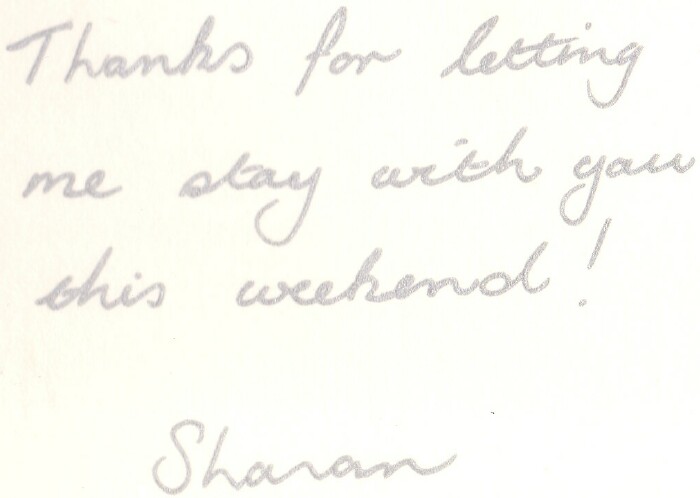 Thanks for letting
me stay with you
this weekend!
Sharan